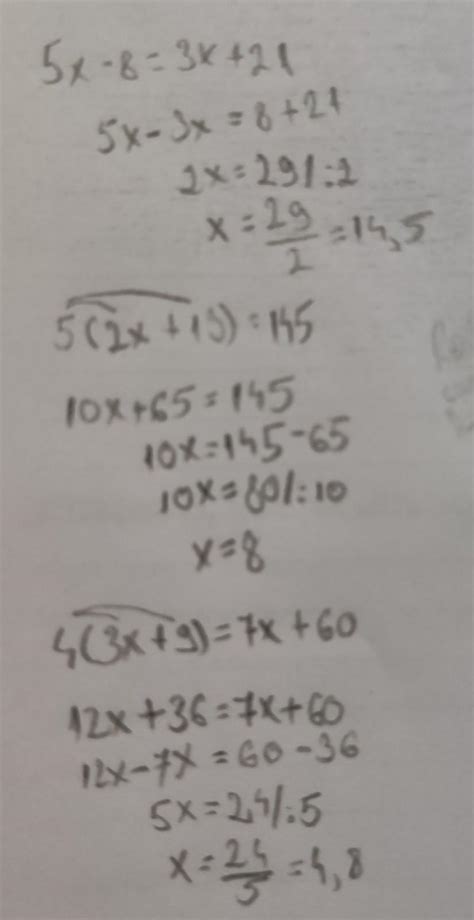 5x-8=3x+21
5x-3x=8+21
2x=29/:2
x=29/2=14,5
5(2x+13)=145
10x+65=145
10x=145-65
10x=80/:10
x=8
4(3x+9)=7x+60
12x+36=7x+60
12x-7x=60-36
5x=24/:5
x=24/5=4,8